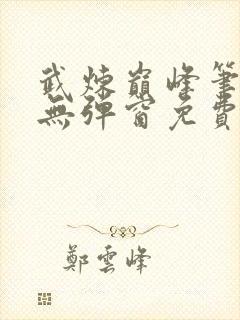 武煉巔峰筆
無彈窗免費
鄭雲峰